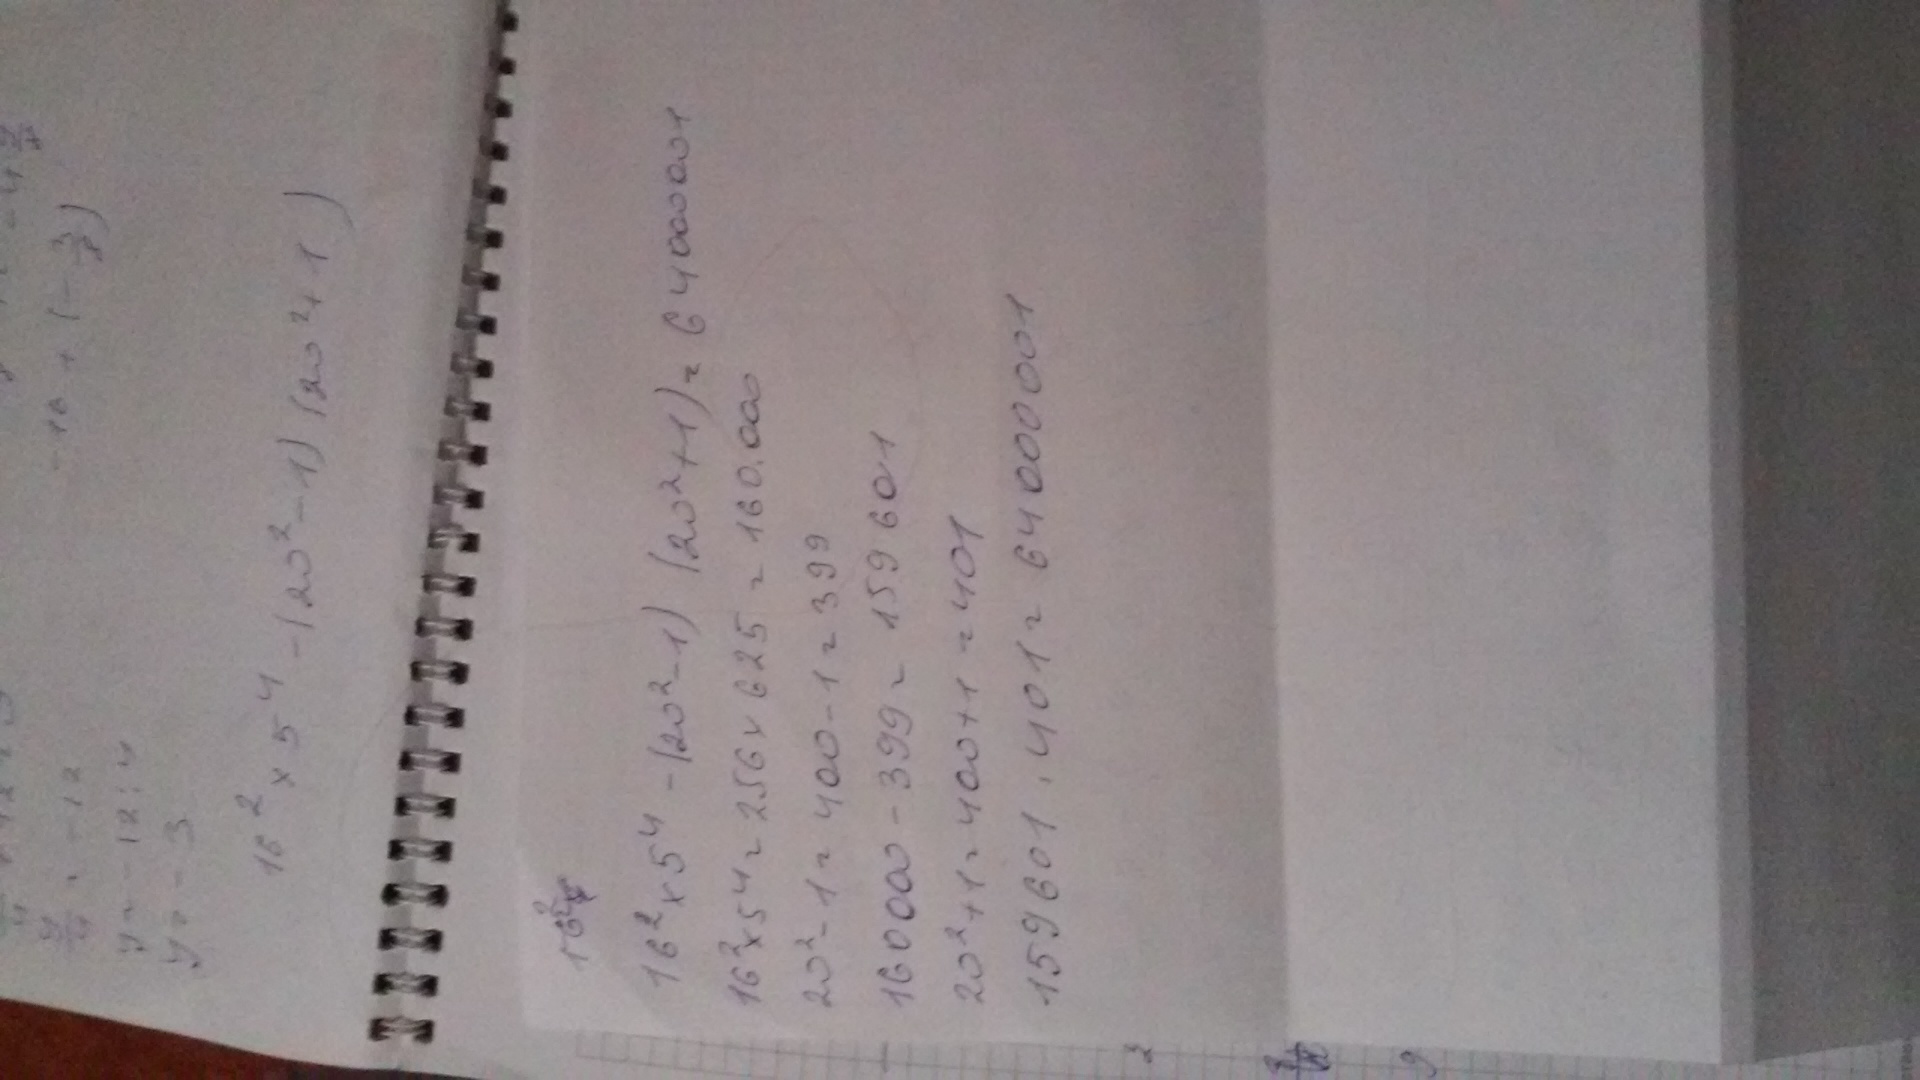 -16 + (-3/8)
y = -12:4
y = -3
16² × 5⁴ - (20² - 1) (20² + 1)
16²
16² × 5⁴ - (20² - 1) (20² + 1) = 64000001
16² × 5⁴ = 256 × 625 = 160.000
20² - 1 = 400 - 1 = 399
160000 - 399 = 159601
20² + 1 = 400 + 1 = 401
159601 . 401 = 64000001